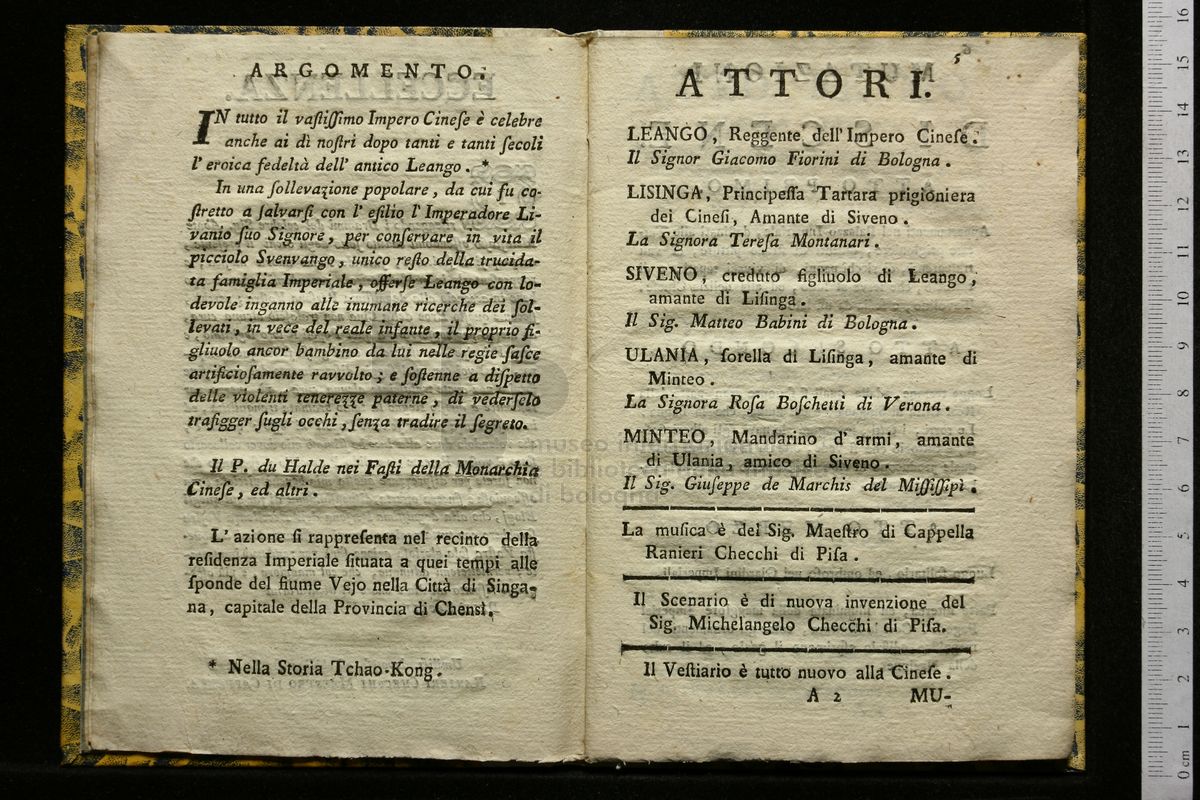 ARGOMENTO.
IN tutto il vaſtiſſimo Impero Cineſe è celebre
anche ai dì noſtri dopo tanti e tanti ſecoli
l' eroica fedeltà dell' antico Leango. *
In una ſollevazione popolare, da cui fu co-
ſtretto a ſalvarſi con l' eſilio l' Imperadore Li-
vanio ſuo Signore, per conſervare in vita il
picciolo Svenvango, unico reſto della trucida-
ta famiglia Imperiale, offerſe Leango con lo-
devole inganno alle inumane ricerche dei ſol-
levati, in vece del reale infante, il proprio fi-
gliuolo ancor bambino da lui nelle regie faſce
artificioſamente ravvolto; e ſoſtenne a diſpetto
delle violenti tenerezze paterne, di vederſelo
trafigger ſugli occhi, ſenza tradire il ſegreto.
Il P. du Halde nei Faſti della Monarchia
Cineſe, ed altri.
L' azione ſi rappreſenta nel recinto della
reſidenza Imperiale ſituata a quei tempi alle
ſponde del fiume Vejo nella Città di Singa-
na, capitale della Provincia di Chensì.
* Nella Storia Tchao-Kong.
5
ATTORI.
LEANGO, Reggente dell' Impero Cineſe.
Il Signor Giacomo Fiorini di Bologna.
LISINGA, Principeſſa Tartara prigioniera
dei Cineſi, Amante di Siveno.
La Signora Tereſa Montanari.
SIVENO, creduto figliuolo di Leango,
amante di Liſinga.
Il Sig. Matteo Babini di Bologna.
ULANIA, ſorella di Liſinga, amante di
Minteo.
La Signora Roſa Boſchetti di Verona.
MINTEO, Mandarino d' armi, amante
di Ulania, amico di Siveno.
Il Sig. Giuſeppe de Marchis del Miſſiſſipì.
La muſica è del Sig. Maeſtro di Cappella
Ranieri Checchi di Piſa.
Il Scenario è di nuova invenzione del
Sig. Michelangelo Checchi di Piſa.
Il Veſtiario è tutto nuovo alla Cineſe.
A 2 MU-
museo
biblioteca
di bologna
0 cm 1 2 3 4 5 6 7 8 9 10 11 12 13 14 15 16